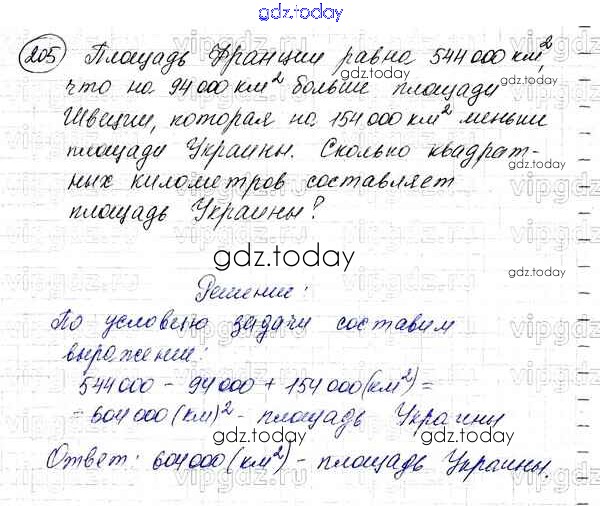 gdz.today
205 Площадь Франции равна 544 000 км²,
что на 94 000 км² больше площади
Швеции, которая на 154 000 км² меньше
площади Украины. Сколько квадрат-
ных километров составляет
площадь Украины?
gdz.today
Решение:
По условию задачи составим
выражение:
544 000 - 94 000 + 154 000 (км²) =
= 604 000 (км)² - площадь Украины
gdz.today
Ответ: 604 000 (км²) - площадь Украины.
gdz.today